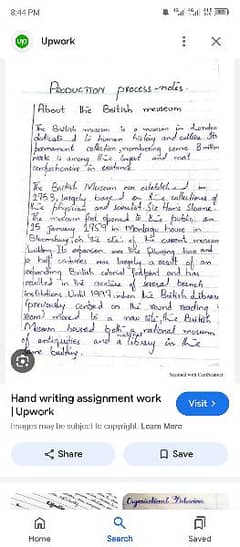 8:44 PM
Upwork
PRODUCTION process-notes.
About the British museum
The British museum is a museum in London
dedicated to human history and culture. Its
permanent collection, numbering some 8 million
works is among the largest and most
comprehensive in existence
The British Museum was established in
1753, largely based on the collections of
the physician and scientist Sir Hans Sloane.
The museum first opened to the public on
15 January 1759 in Montagu house in
Bloomsbury, on the site of the current museum
building. Its expansion over the following two and
a half centuries was largely a result of an
expanding British colonial footprint and has
resulted in the creation of several branch
institutions. Until 1997, when the British library
(previously centred on the round reading
room) moved to a new site, the British
Museum housed both a national museum
of antiquities and a library in the
same building.
Scanned with CamScanner
Hand writing assignment work
| Upwork
Visit >
Images may be subject to copyright. Learn More
Share
Save
Organisational Behaviour
Home
Search
Saved